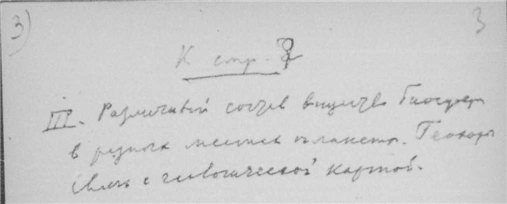 3) 3
К стр. 8
III. Различный состав вещества биосферы
в разных местах планеты.
связь с геологической картой.